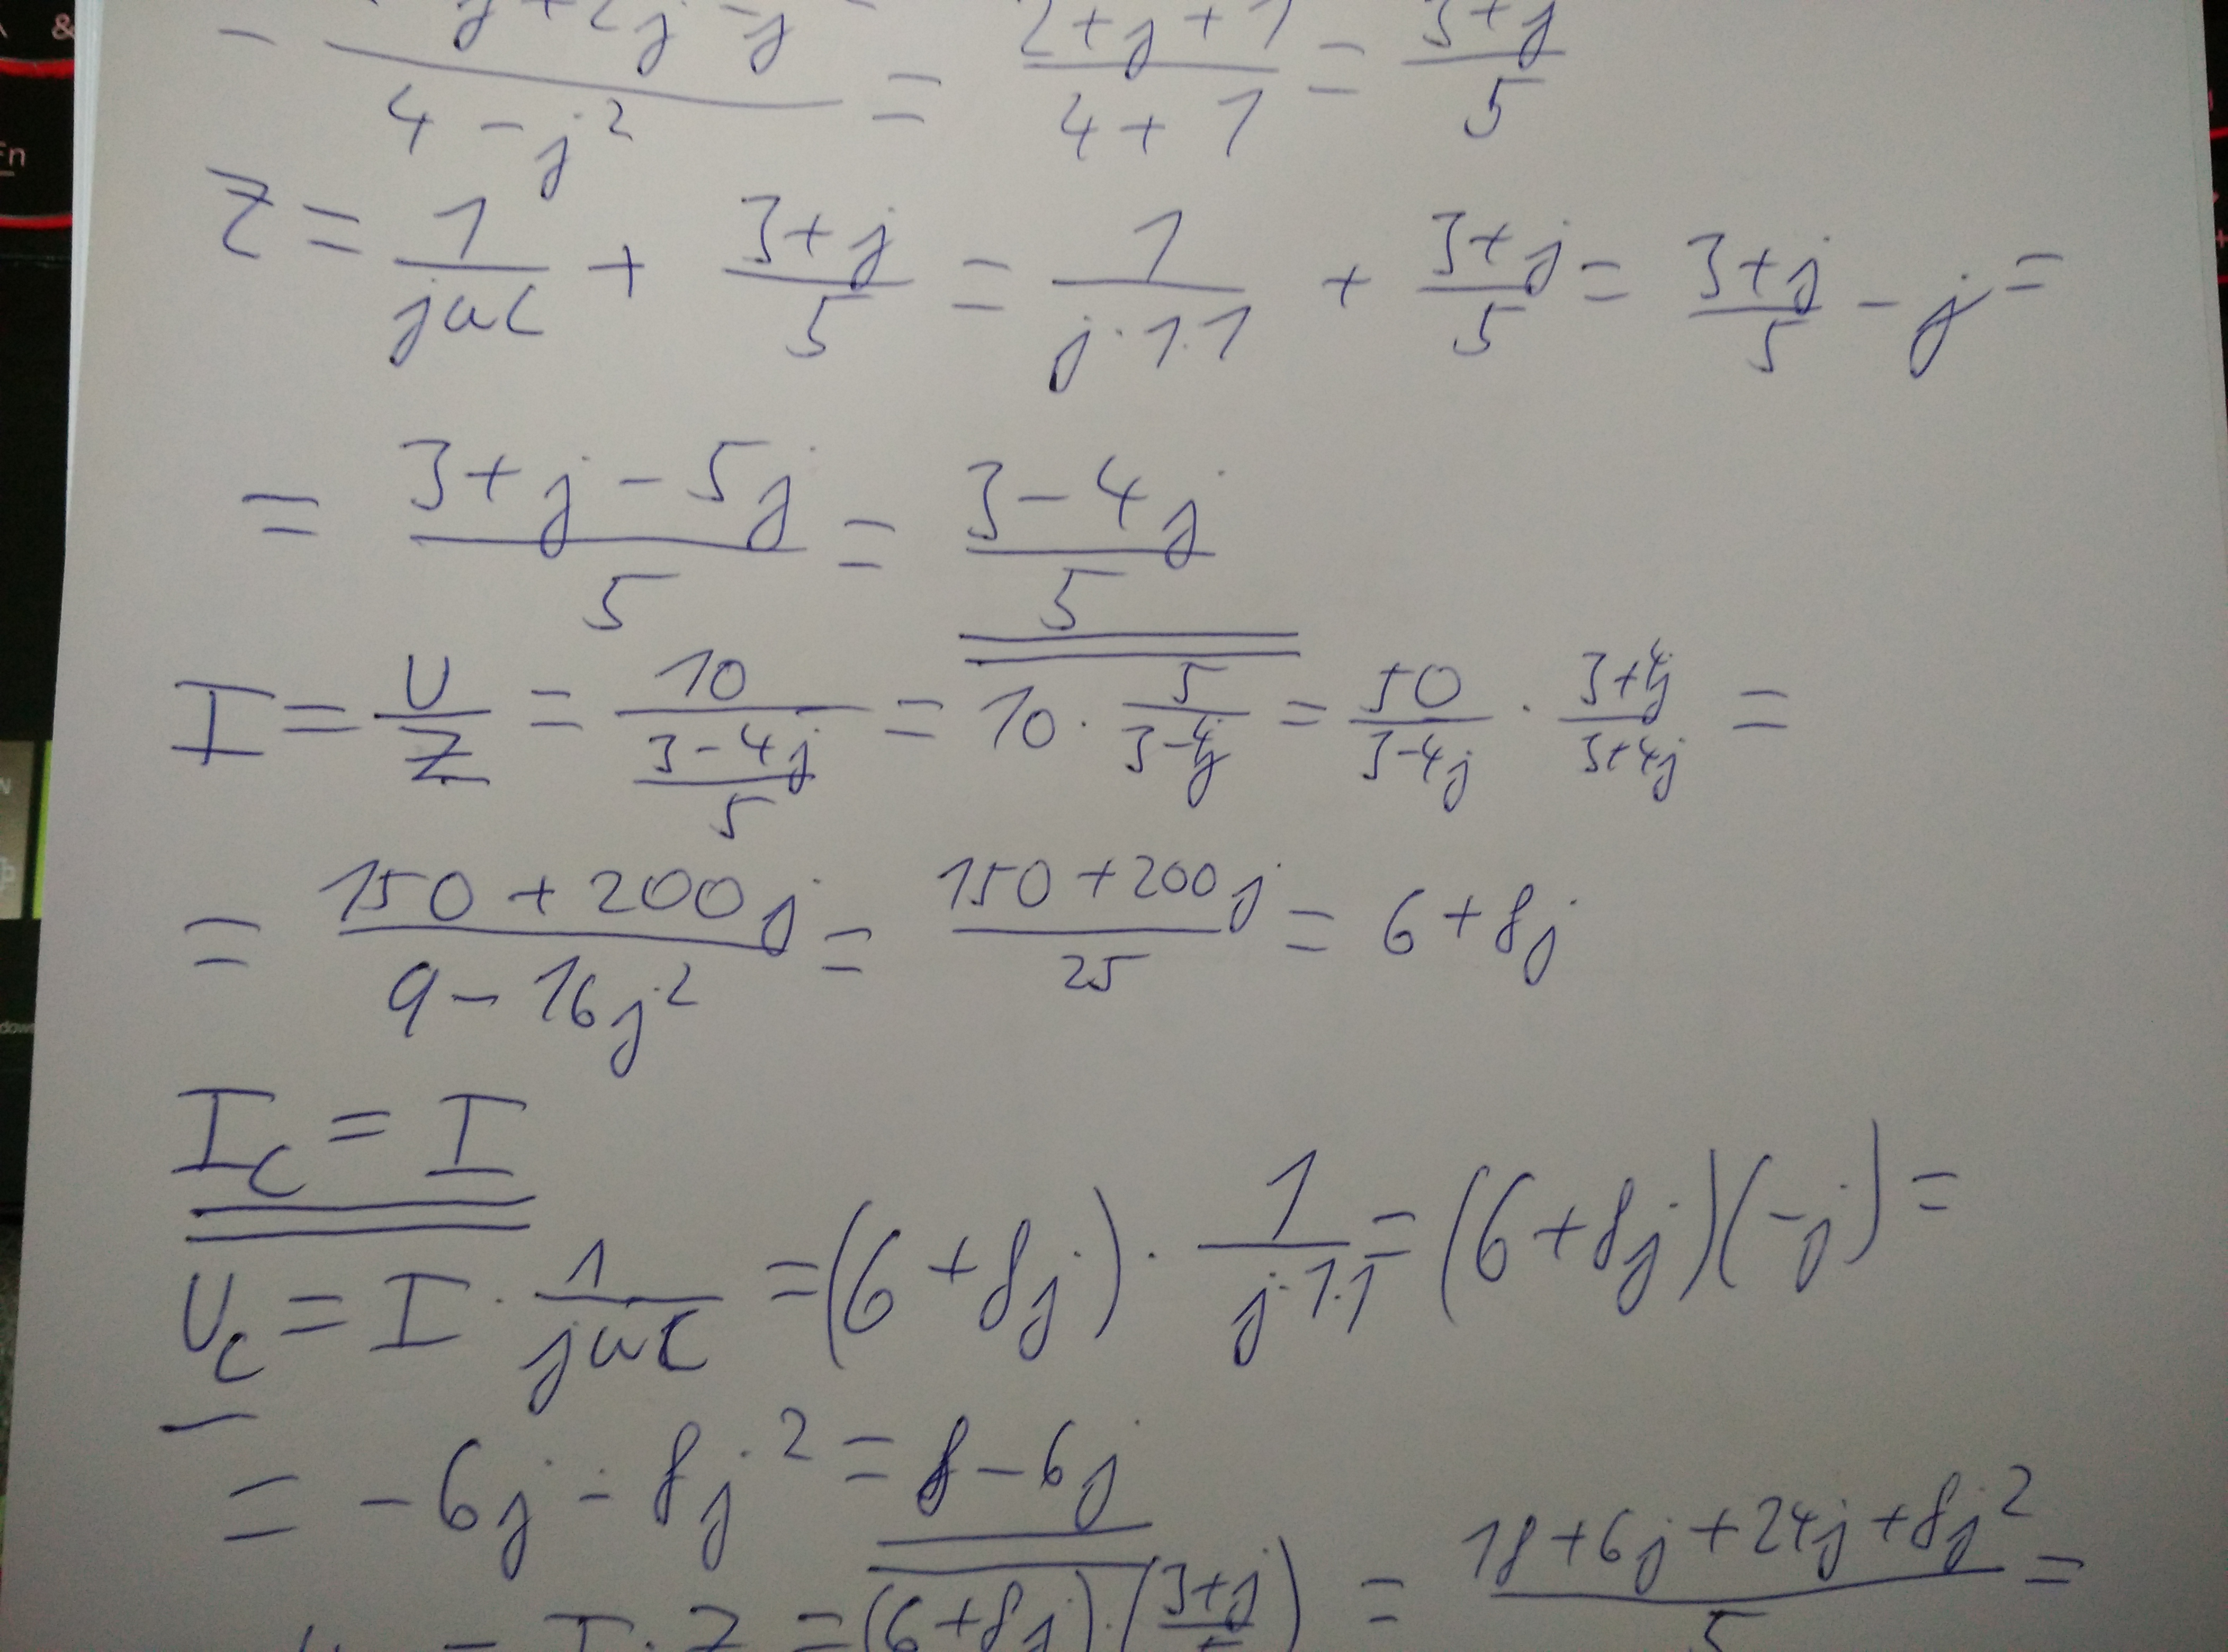 - (… + 2j - j …)/(4 - j²) = (2 + j + 1)/(4 + 1) = (3 + j)/5
Z = 1/(jωC) + (3 + j)/5 = 1/(j·1·1) + (3 + j)/5 = (3 + j)/5 - j =
= (3 + j - 5j)/5 = (3 - 4j)/5
I = U/Z = 10/((3 - 4j)/5) = 10 · 5/(3 - 4j) = 50/(3 - 4j) · (3 + 4j)/(3 + 4j) =
= (150 + 200j)/(9 - 16j²) = (150 + 200j)/25 = 6 + 8j
I_C = I
U_C = I · 1/(jωC) = (6 + 8j) · 1/(j·1·1) = (6 + 8j)(-j) =
= -6j - 8j² = 8 - 6j
= I · Z = (6 + 8j) · ((3 + j)/5) = (18 + 6j + 24j + 8j²)/5 =
&
Fn
N